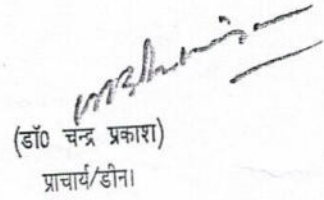 (डॉ0 चन्द्र प्रकाश)
प्राचार्य/डीन।